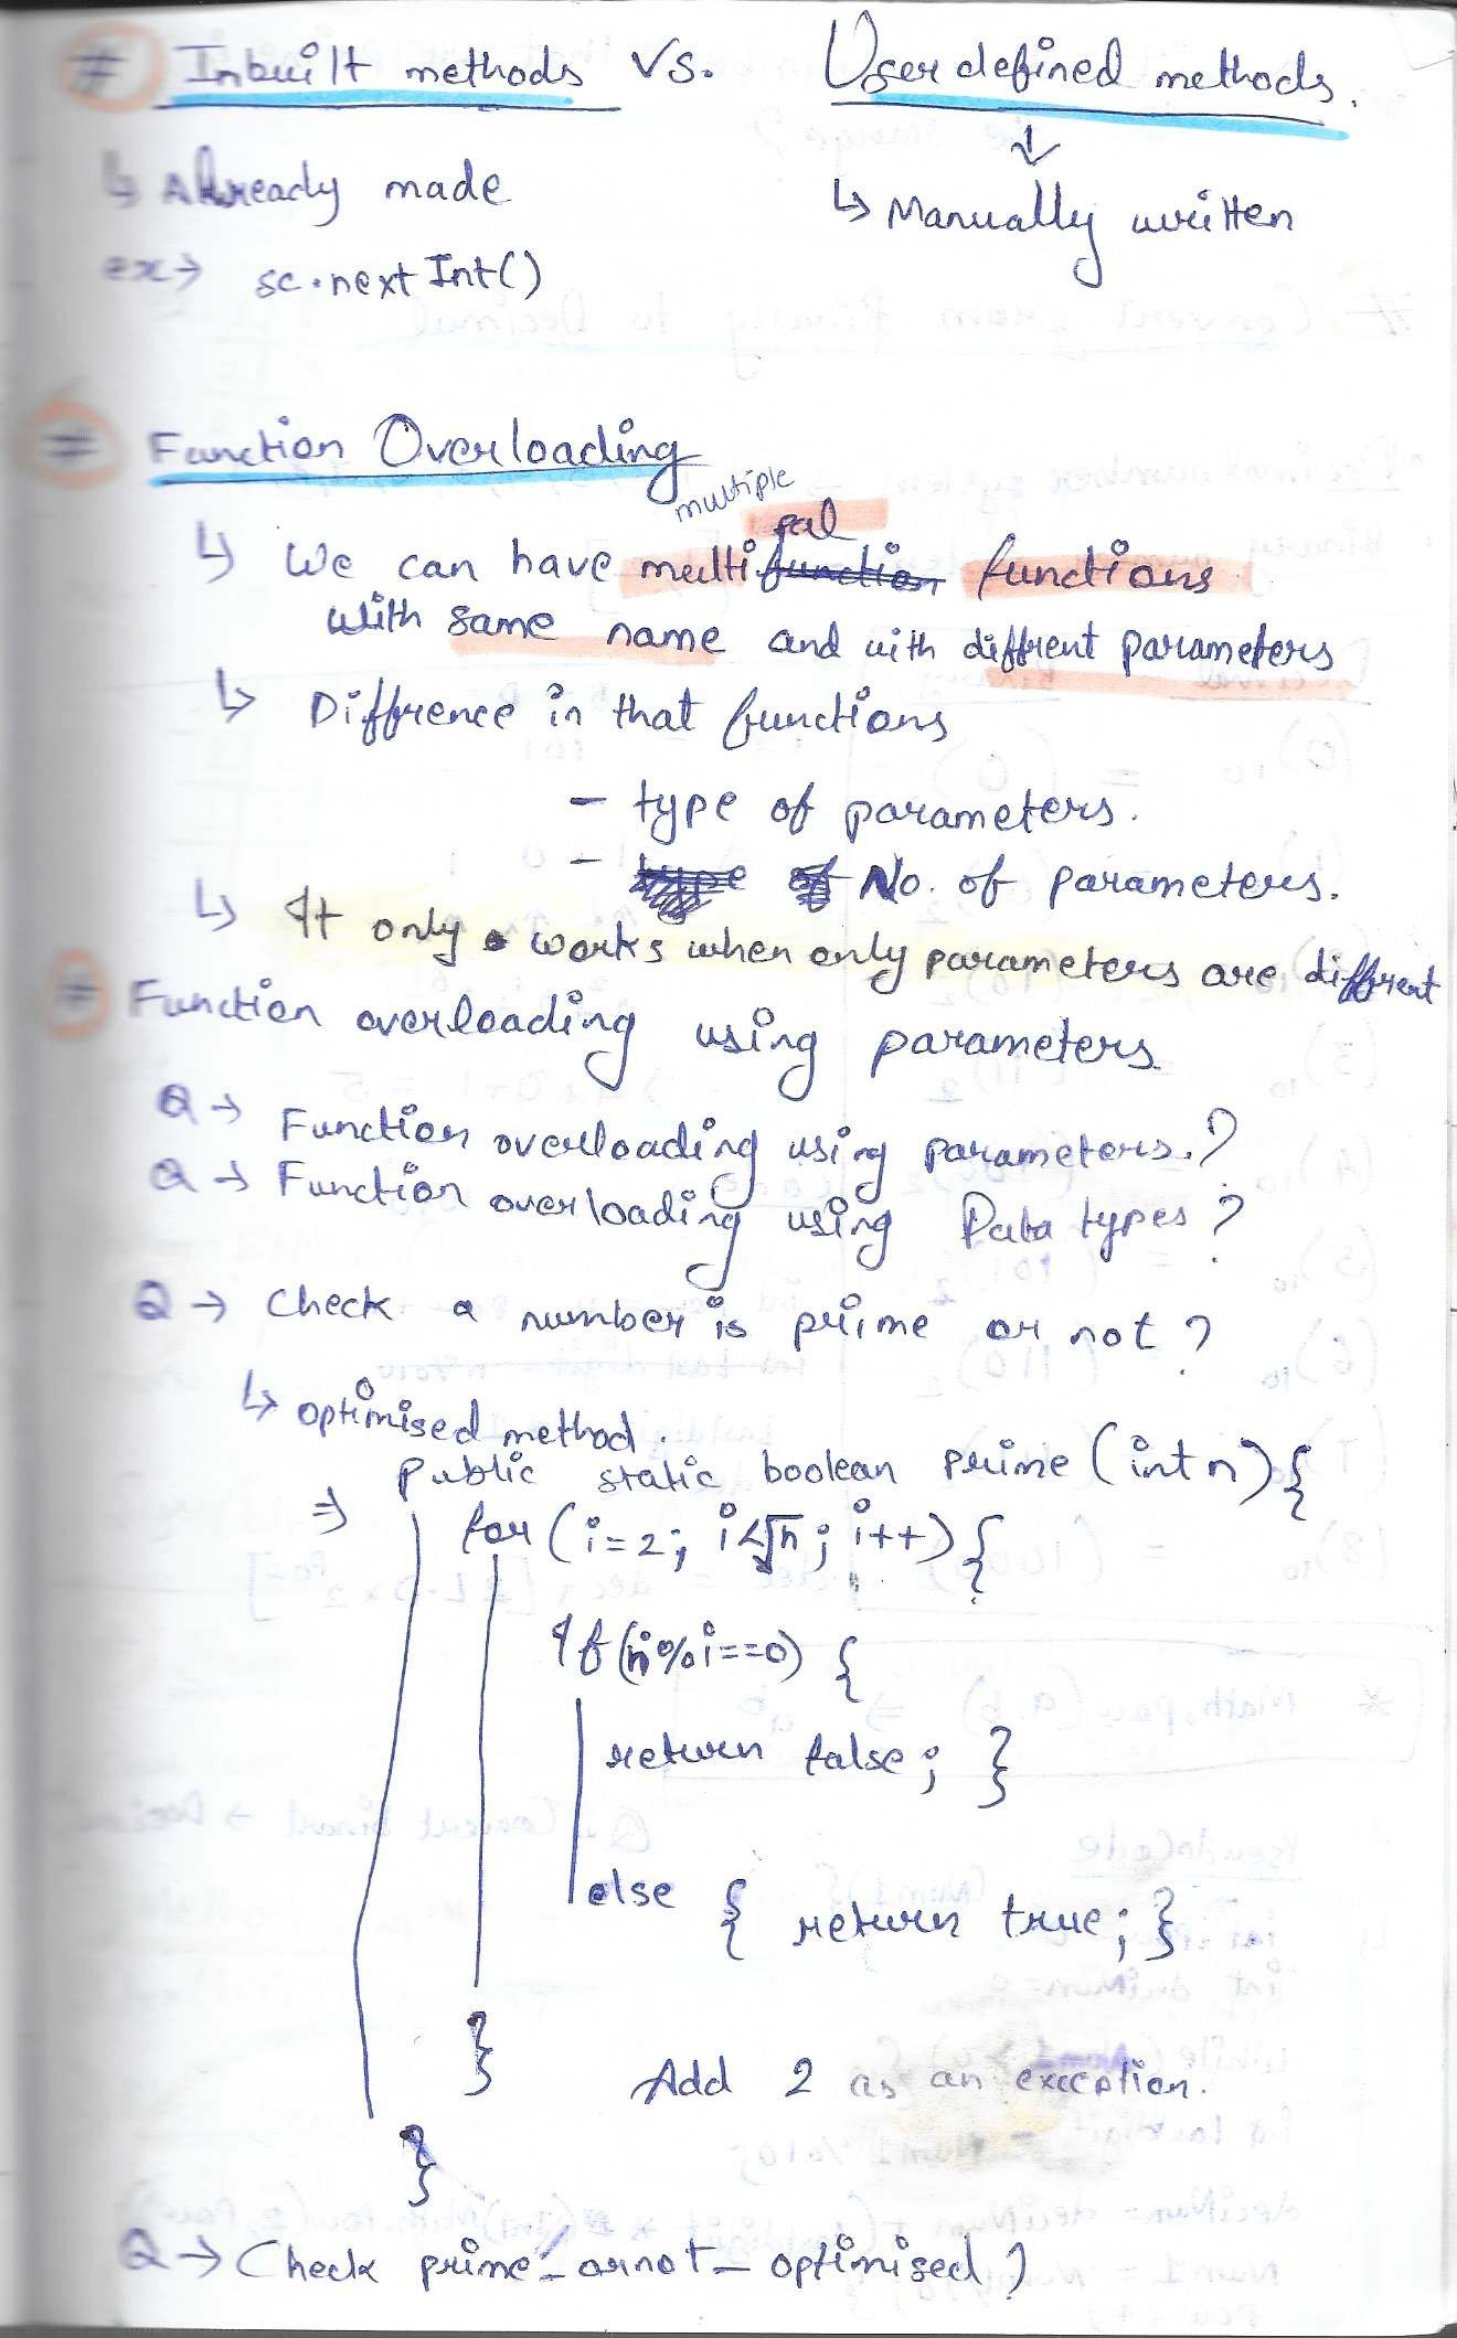 # Inbuilt methods VS. Userdefined methods.
↳ Already made ↳ Manually written
ex→ sc.nextInt()
# Function Overloading
multiple
pal
↳ We can have multi function functions
with same name and with diffrent parameters
↳ Diffrence in that functions
- type of parameters.
- type of No. of parameters.
↳ It only works when only parameters are diffrent
# Function overloading using parameters
Q → Function overloading using parameters.?
Q → Function overloading using Data types?
Q → Check a number is prime or not?
↳ optimised method.
⇒ Public static boolean prime (int n) {
for (i=2; i<√n; i++) {
If (n%i==0) {
return false; }
else { return true; }
}
Add 2 as an exception.
}
Q → Check prime_ornot_optimised?